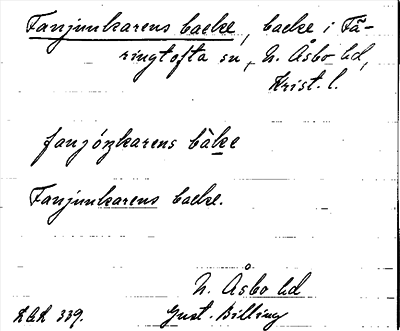 Fanjunkarens backe, backe i Fä-
ringtofta sn, N. Åsbo hd,
Krist. l.
fanjóŋkarens bàke
Fanjunkarens backe.
N. Åsbo hd
339. Gust. Billing